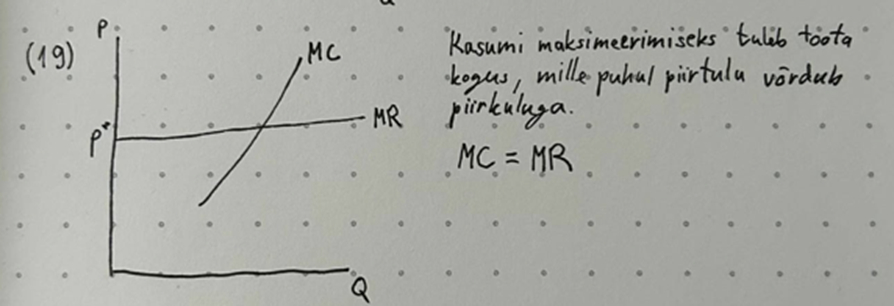 (19)
P
MC
MR
P*
Q
Kasumi maksimeerimiseks tuleb toota
kogus, mille puhul piirtulu võrdub
piirkuluga.
MC = MR